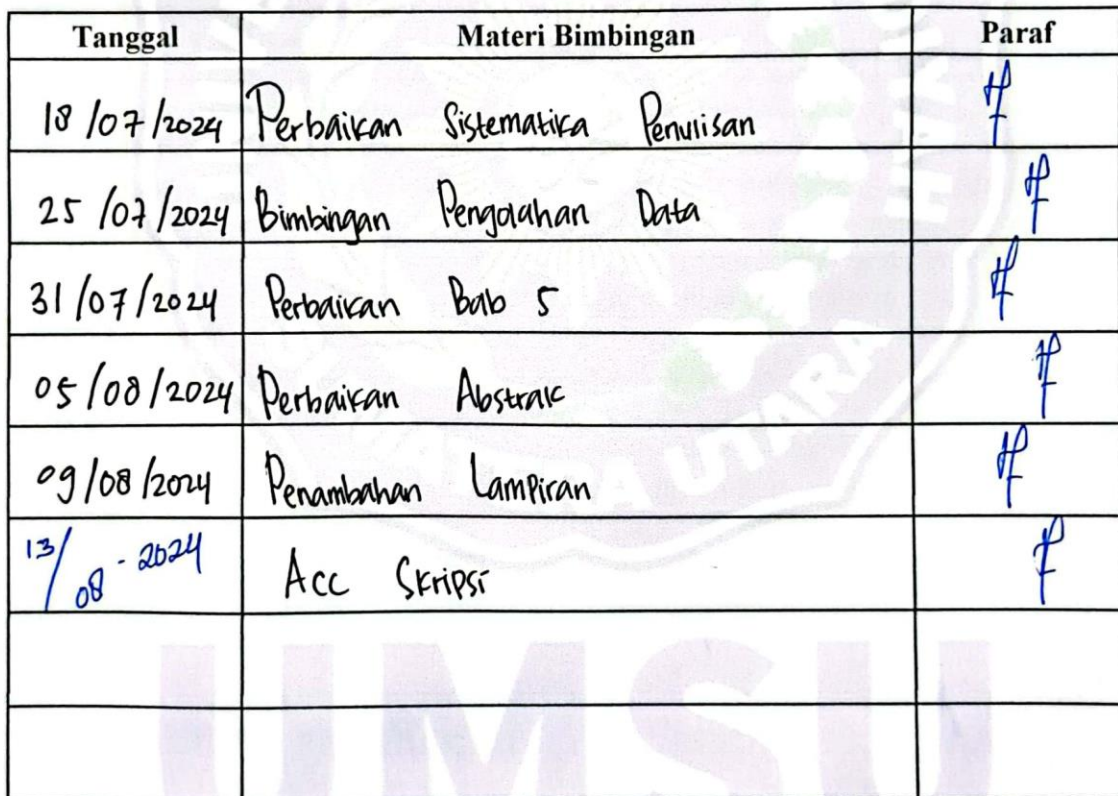 Tanggal Materi Bimbingan Paraf
18/07/2024 Perbaikan Sistematika Penulisan
25/07/2024 Bimbingan Pengolahan Data
31/07/2024 Perbaikan Bab 5
05/08/2024 Perbaikan Abstrak
09/08/2024 Penambahan Lampiran
13/08-2024 Acc Skripsi
UTARA
UMSU